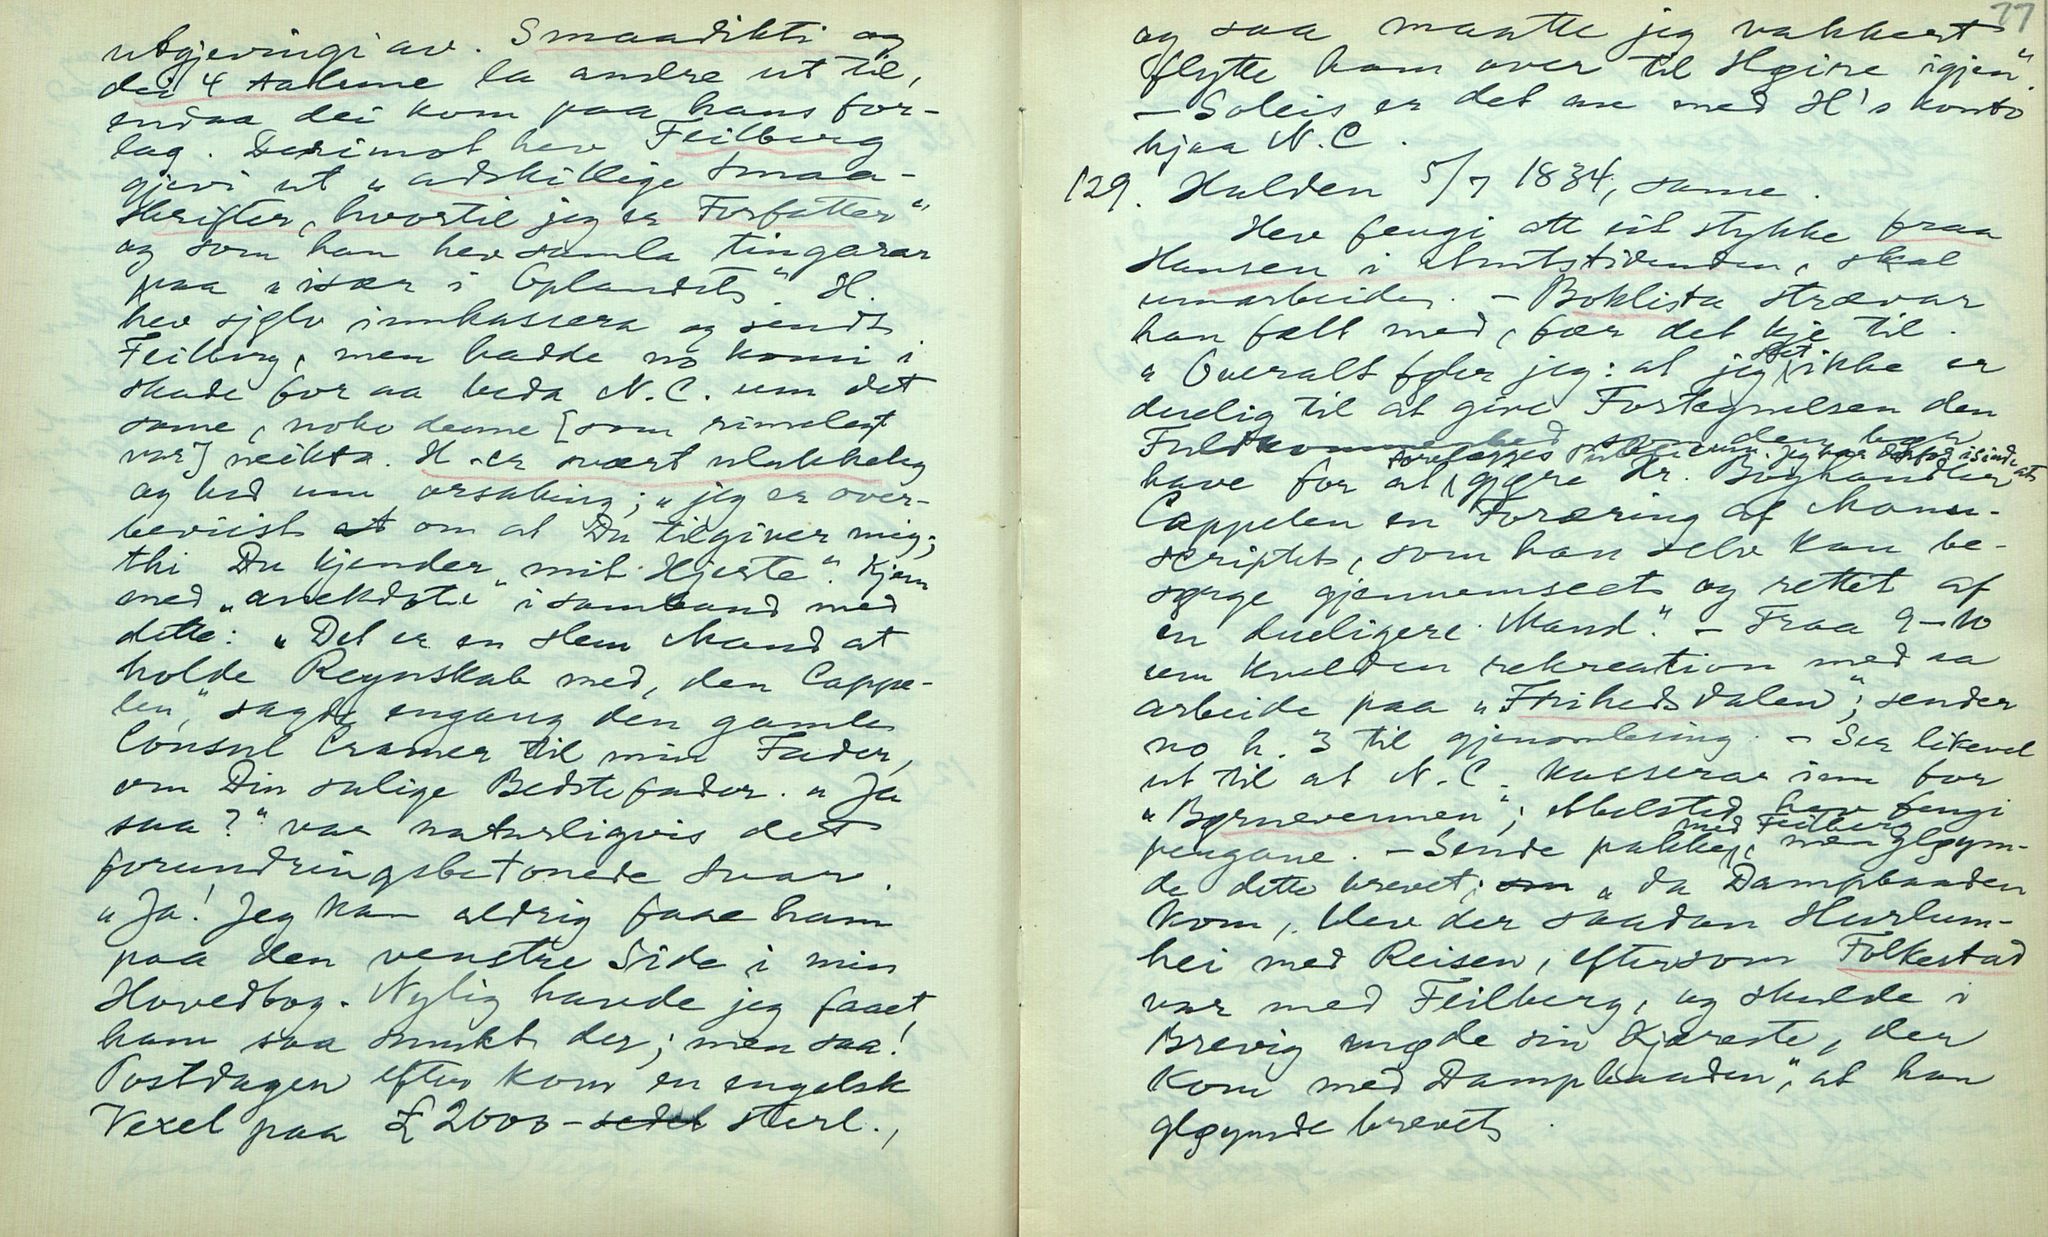 utgjevingi av. Smaadikti og
dei 4 talene la andre ut til,
endaa dei kom paa hans for-
lag. Derimot hev Feilberg
gjevi ut "adskillige Smaa-
skrifter, hvortil jeg er Forfatter"
og som han hev samla tingarar
paa "især i Oplandet". H.
hev sjølv innkassera og sendt
Feilberg, men hadde no komi i
skade for aa beda N. C. um det
same, noko denne [som rimelegt
var] neikta. H. er svært ulukkeleg
og bed um orsaking; "jeg er over-
beviist at om at Du tilgiver mig;
thi Du kjender mit Hjerte". Kjem
med "anekdote" i samband med
dette: "Det er en slem Mand at
holde Regnskab med, den Cappe-
len," sagde engang den gamle
Consul Cramer til min Fader,
om Din salige Bedstefader. "Ja
saa?" var naturligvis det
forundringsbetonede Svar.
"Ja! Jeg kan aldrig faae ham
paa den venstre Side i min
Hovedbog. Nylig havde jeg faaet
ham saa smukt der; men saa!
Postdagen efter kom en engelsk
Vexel paa £ 2000 - sedel sterl.,
77
og saa maatte jeg vakkert
flytte ham over til Høire igjen"
- Soleis er det no med H's konto
hjaa N. C.
129. Halden 5/7 1834, same.
Hev fengi att eit stykke fraa
Hansen i Amtstidenden, skal
umarbeides. - Boklista strævar
han fælt med, fær det kje til.
"Overalt føler jeg: at jeg slet ikke er
duelig til at give Fortegnelsen den
Fuldkommenhed som den bør
have for at forelægges Publicum. jeg var derfor isinde at
gjøre Hr. Boghandler
Cappelen en Foræring af Manu-
scriptet, som han selv kan be-
sørge gjennemseet og rettet af
en dueligere Mand." - Fraa 9-10
um kvelden rekreation med aa
arbeide paa "Frihedsdalen"; sender
no h. 3 til gjenomlesing. - Ser likevel
ut til at N. C. kasserar inn for
"Børnevennen"; Melsted hev fengi
pengane. - Sende pakke med Feilberg, men gløym-
de dette brevet; som "da Dampbaaden
kom, blev der saadan Hurlum-
hei med Reisen, eftersom Folkestad
var med Feilberg, og skulde i
Brevig møde sin Kjæreste, der
kom med Dampbaaden", at han
gløymde brevet.